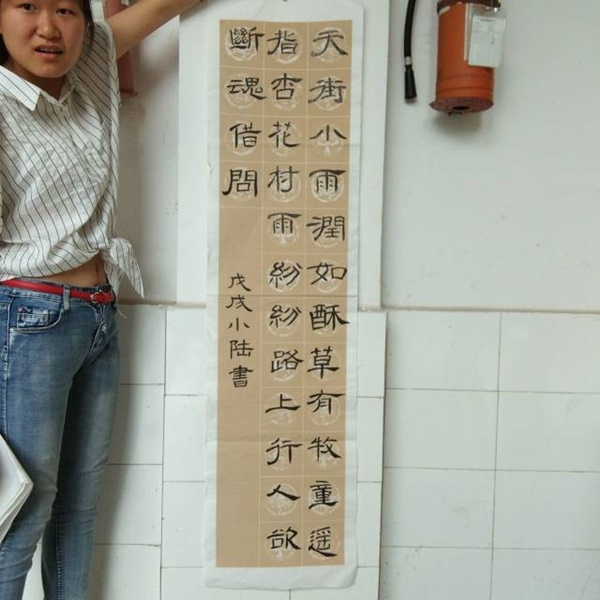 天街小雨潤如酥草有牧童遥
指杏花村雨紛紛路上行人欲
斷魂借問
戊戌小陆書